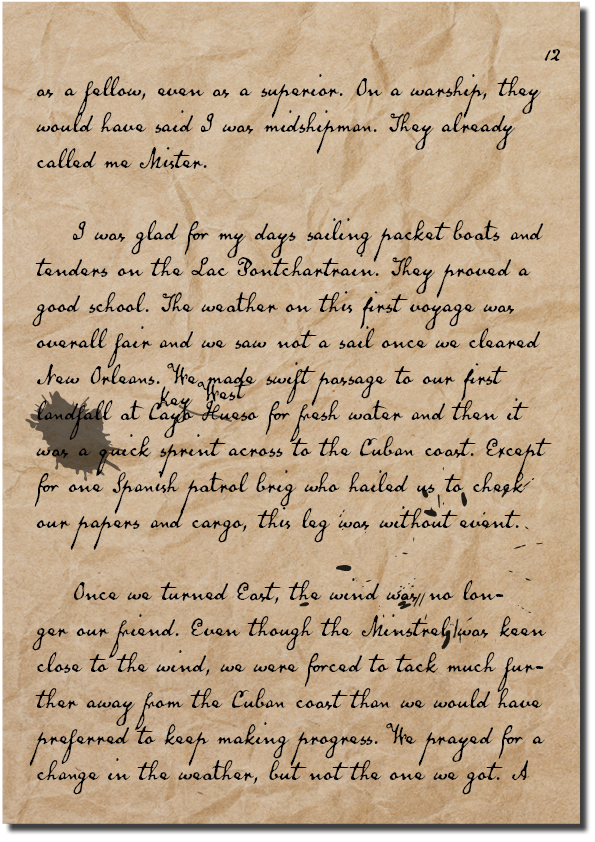 12
as a fellow, even as a superior. On a warship, they
would have said I was midshipman. They already
called me Mister.
I was glad for my days sailing packet boats and
tenders on the Lac Pontchartrain. They proved a
good school. The weather on this first voyage was
overall fair and we saw not a sail once we cleared
New Orleans. We made swift passage to our first
Key West
landfall at Cayo Hueso for fresh water and then it
was a quick sprint across to the Cuban coast. Except
for one Spanish patrol brig who hailed us to check
our papers and cargo, this leg was without event.
Once we turned East, the wind was no lon-
ger our friend. Even though the Minstrel was keen
close to the wind, we were forced to tack much fur-
ther away from the Cuban coast than we would have
preferred to keep making progress. We prayed for a
change in the weather, but not the one we got. A